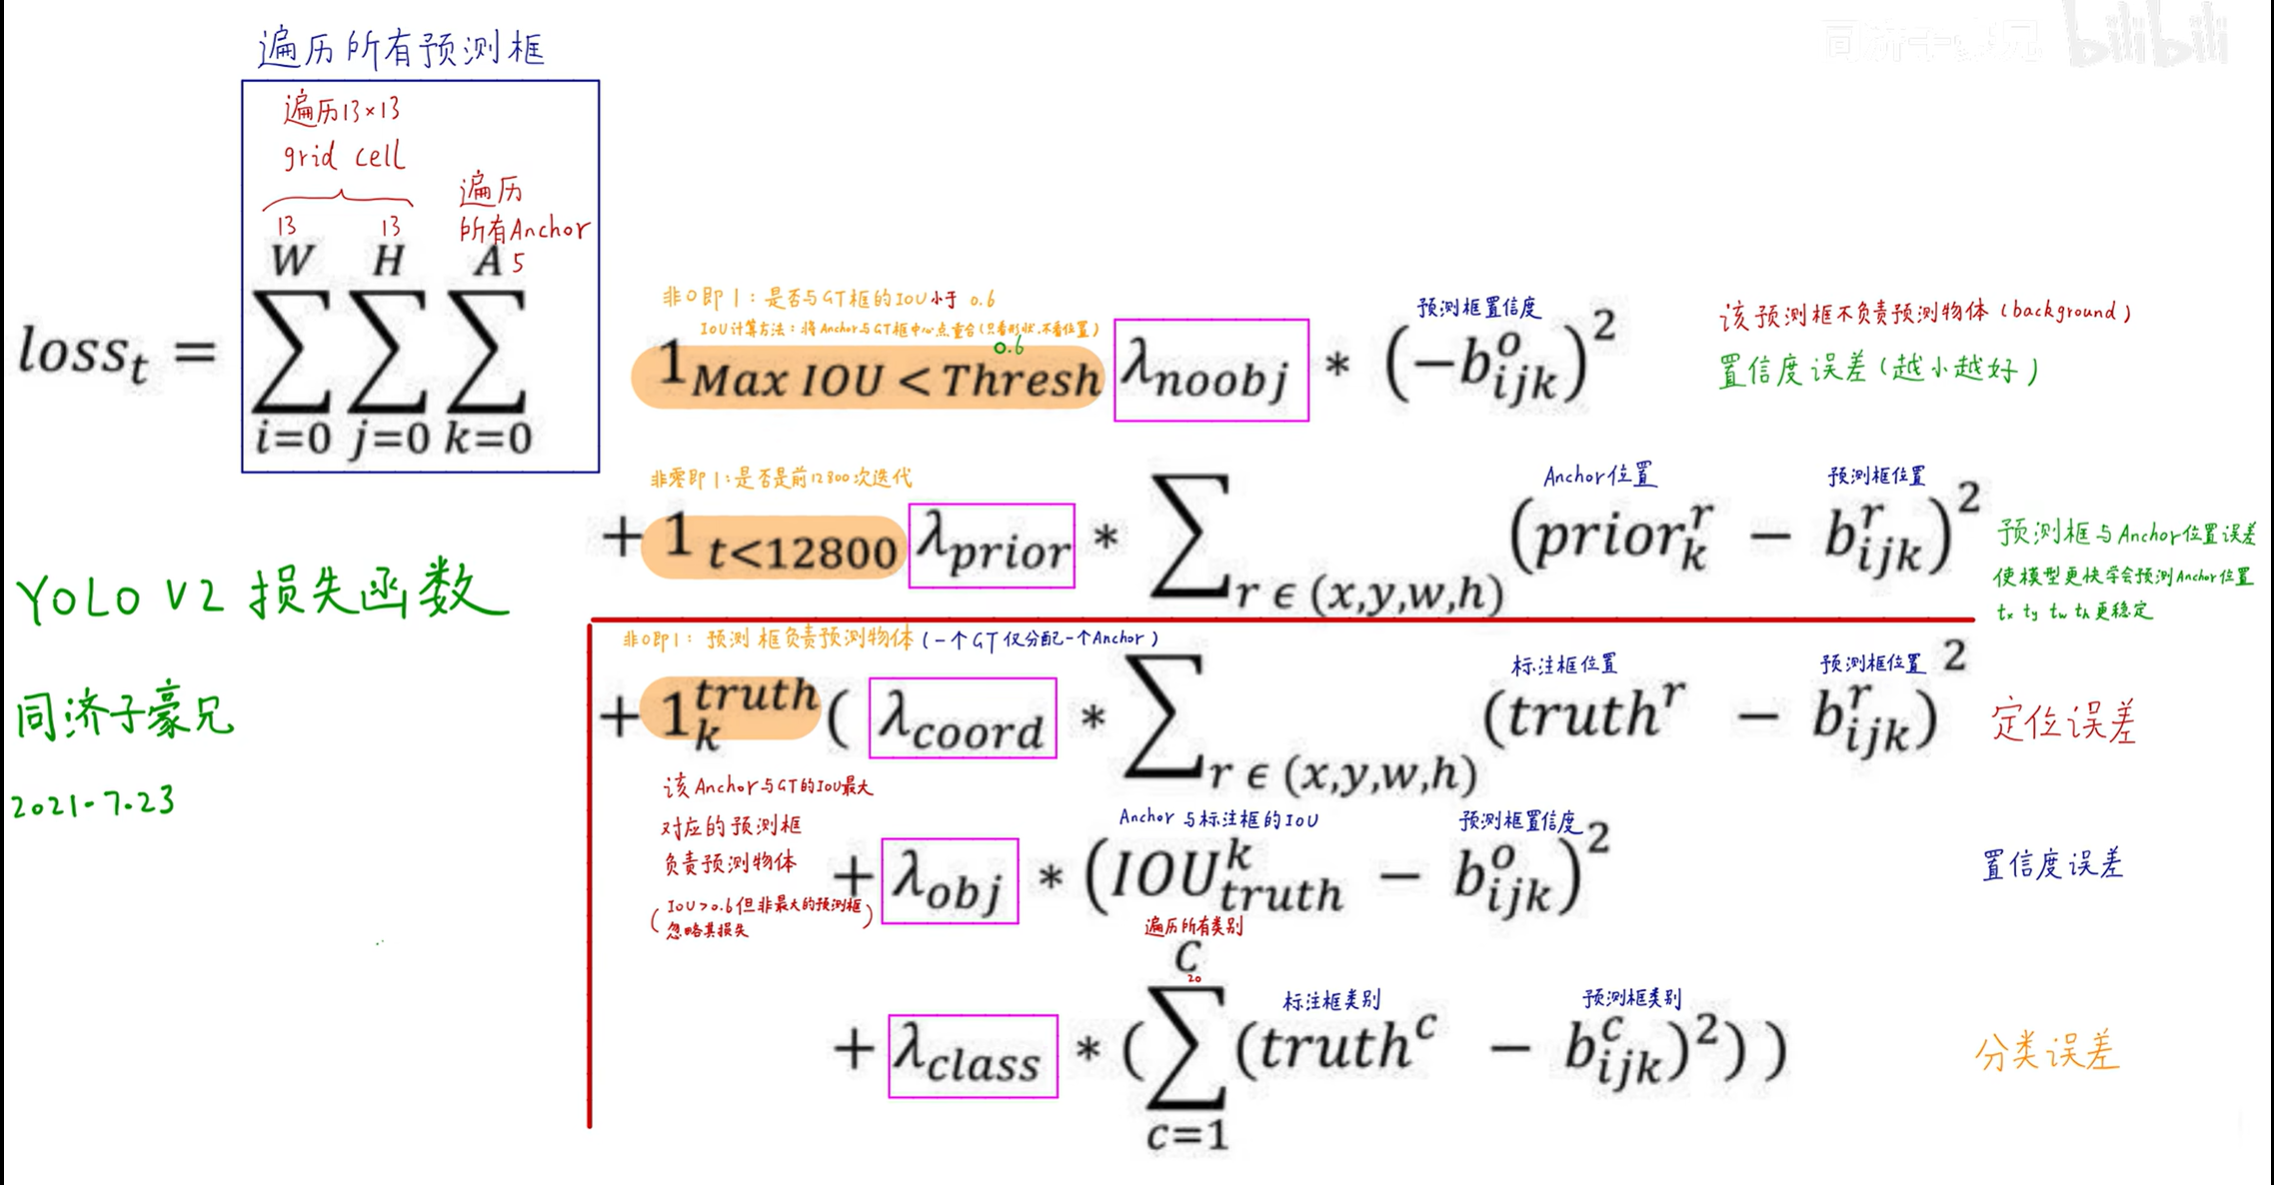 同济子豪兄 bilibili
遍历所有预测框
遍历13×13
grid cell
遍历
所有Anchor
13 13 5
loss_t = \sum_{i=0}^{W} \sum_{j=0}^{H} \sum_{k=0}^{A}
非0即1：是否与GT框的IOU小于 0.6
IOU计算方法：将Anchor与GT框中心点重合(只看形状,不看位置)
0.6
预测框置信度
1_{Max IOU < Thresh} λ_{noobj} * (-b_{ijk}^{o})^2
该预测框不负责预测物体（background）
置信度误差(越小越好)
非零即1：是否是前12800次迭代
Anchor位置 预测框位置
+ 1_{t<12800} λ_{prior} * \sum_{r ϵ (x,y,w,h)} (prior_k^r - b_{ijk}^r)^2
预测框与Anchor位置误差
使模型更快学会预测Anchor位置
tx ty tw th 更稳定
YOLO V2 损失函数
同济子豪兄
2021.7.23
非0即1：预测框负责预测物体(一个GT仅分配一个Anchor)
标注框位置 预测框位置
+ 1_k^{truth} ( λ_{coord} * \sum_{r ϵ (x,y,w,h)} (truth^r - b_{ijk}^r)^2
定位误差
该Anchor与GT的IOU最大
对应的预测框
负责预测物体
(IOU>0.6但非最大的预测框
忽略其损失)
Anchor与标注框的IOU 预测框置信度
+ λ_{obj} * (IOU_{truth}^k - b_{ijk}^o)^2
置信度误差
遍历所有类别
20
标注框类别 预测框类别
+ λ_{class} * ( \sum_{c=1}^{C} (truth^c - b_{ijk}^c)^2 ) )
分类误差